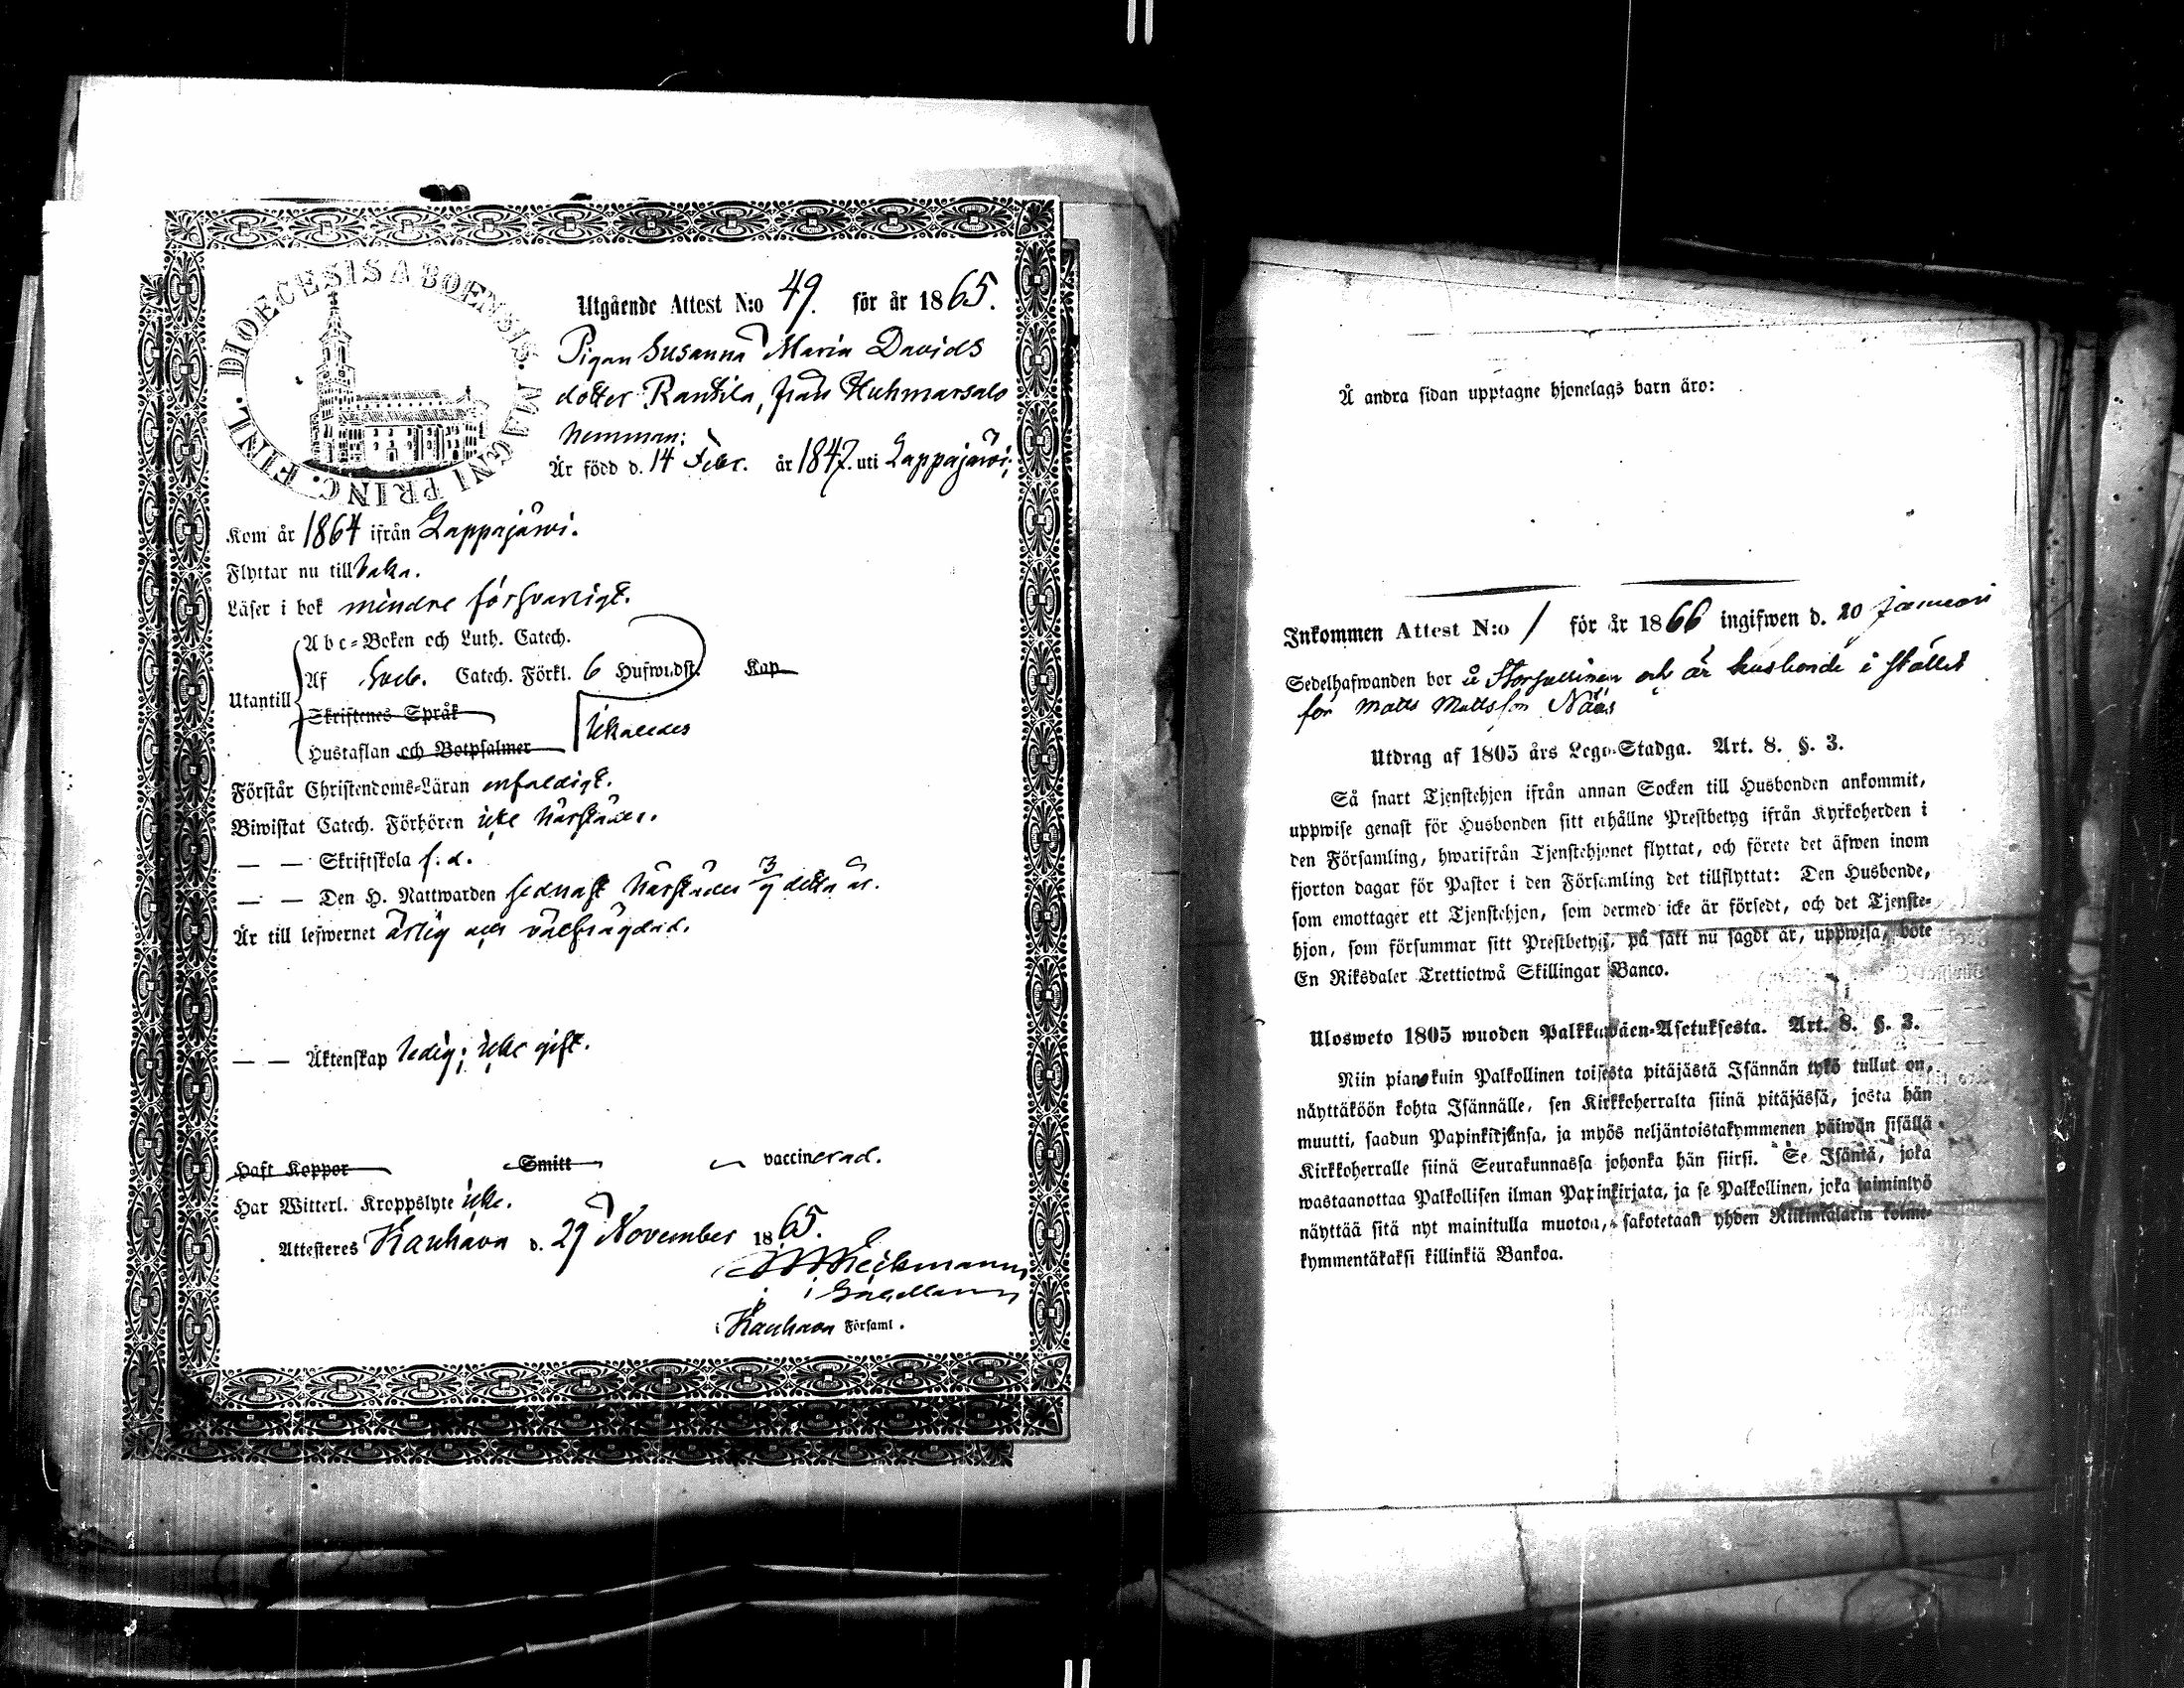 DIOECESIS ABOENSIS. MAGNI PRINC. FINL.
Utgående Attest N:o 49. för år 1865.
Pigan Susanna Maria Davids
dotter Rantila, från Huhmarsalo
hemman;
Är född d. 14 Febr. år 1847. uti Lappajärvi;
Kom år 1864 ifrån Lappajärvi.
Flyttar nu tillbaka.
Läser i bok mindre försvarligt.
Abc-Boken och Luth. Catech.
Utantill
Af Sveb. Catech. Förkl. 6 Hufwudst. Kap
Skriftenes Språk
Hustaflan och Botpsalmer
Förstår Christendoms-Läran enfaldigt.
Biwistat Catech. Förhören icke härstädes.
— — Skriftskola f. d.
— — Den H. Nattwarden sednast härstädes 3/9 detta år.
Är till lefwernet ärlig och välfrägdad.
— — Äktenskap ledig; icke gift.
Haft Koppor Smitt vaccinerad.
Har Witterl. Kroppslyte icke.
Attesteres Kauhava d. 29 November 1865.
i Kauhava Församl.
Å andra sidan upptagne hjonelags barn äro:
Inkommen Attest N:o 1 för år 1866 ingifwen d. 20 januari
Sedelhafwanden bor å och är husbonde i stället
för Matts Mattsson Näas
Utdrag af 1805 års Lego-Stadga. Art. 8. §. 3.
Så snart Tjenstehjon ifrån annan Socken till Husbonden ankommit,
uppwise genast för Husbonden sitt erhållne Prestbetyg ifrån Kyrkoherden i
den Församling, hwarifrån Tjenstehjonet flyttat, och förete det äfwen inom
fjorton dagar för Pastor i den Församling det tillflyttat: Den Husbonde,
som emottager ett Tjenstehjon, som dermed icke är försedt, och det Tjenste-
hjon, som försummar sitt Prestbetyg, på sätt nu sagdt är, uppwisa, böte
En Riksdaler Trettiotwå Skillingar Banco.
Ulosweto 1805 wuoden Palkkawäen-Asetuksesta. Art. 8. §. 3.
Niin pian kuin Palkollinen toisesta pitäjästä Isännän tykö tullut on,
näyttäköön kohta Isännälle, sen Kirkkoherralta siinä pitäjässä, josta hän
muutti, saadun Papinkirjansa, ja myös neljäntoistakymmenen päiwän sisällä
Kirkkoherralle siinä Seurakunnassa johonka hän siirsi. Se Isäntä, joka
wastaanottaa Palkollisen ilman Papinkirjata, ja se Palkollinen, joka laiminlyö
näyttää sitä nyt mainitulla muoton, sakotetaan yhden Riikinkalarin kolme-
kymmentäkaksi killinkiä Bankoa.